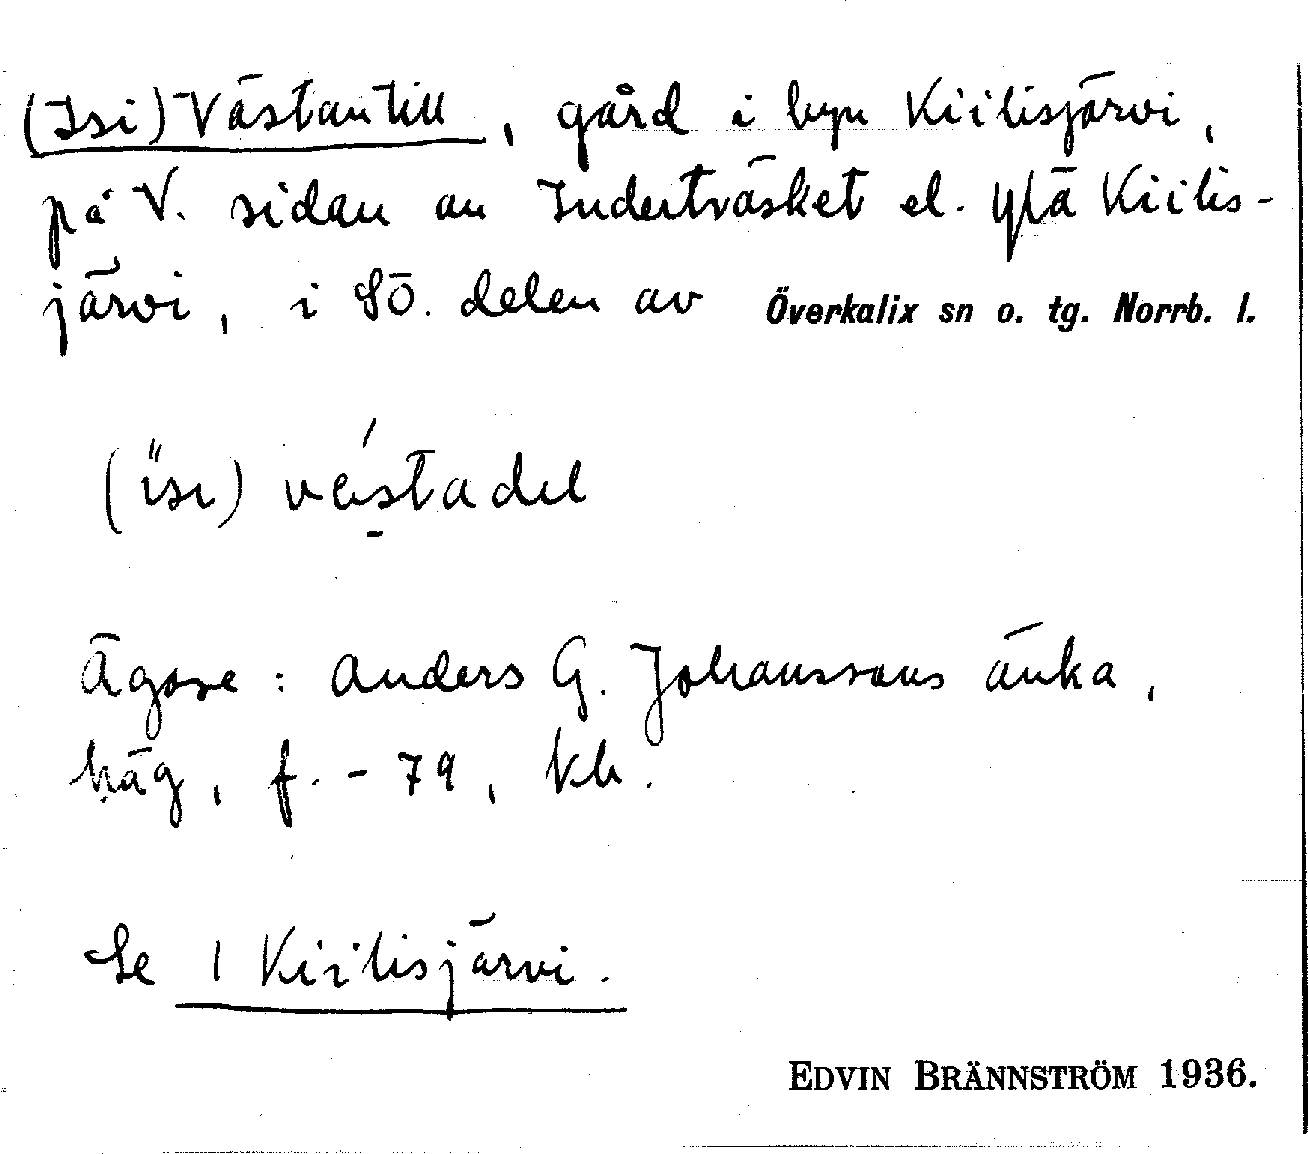 (Isi) Västantill, gård i byn Kiilisjärvi,
på V. sidan av Inderträsket el. Ylä Kiilis-
järvi, i SÖ. delen av Överkalix sn o. tg. Norrb. l.
(isi) véstadel
Ägare: Anders G. Johanssons änka,
häg, f. -79, kh.
Se 1 Kiilisjärvi.
EDVIN BRÄNNSTRÖM 1936.